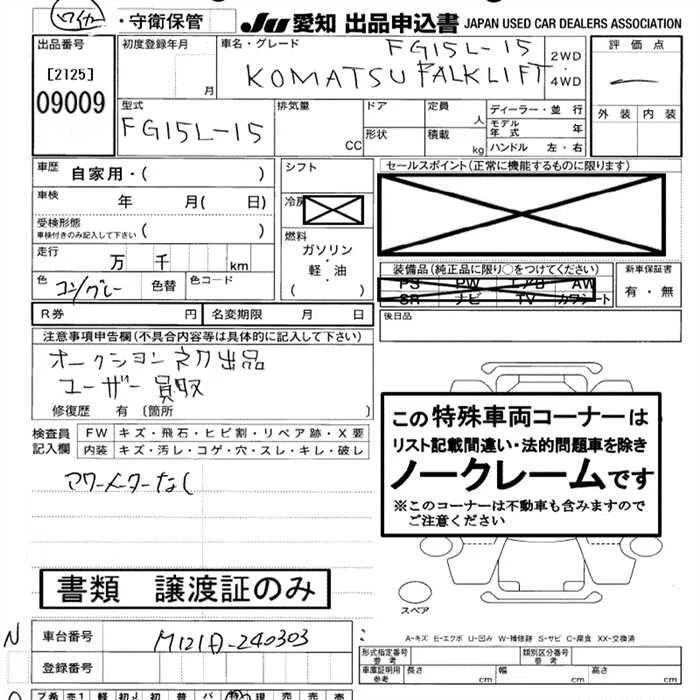 ワイパー・守衛保管
JU 愛知 出品申込書 JAPAN USED CAR DEALERS ASSOCIATION
出品番号
[2125]
09009
初度登録年月
月
車名・グレード
FG15L-15
KOMATSU FALKLIFT
2WD
・
4WD
評価点
外装 内装
型式
FG15L-15
排気量
CC
ドア
形状
定員
人
積載
kg
ディーラー・並 行
モデル
年 式 年
ハンドル 左・右
車歴
自家用・( )
車検
年 月( 日)
受検形態
車検付きのみ記入して下さい ( )
走行
万 千 km
色
コン/グレー
色替
色コード
シフト
冷房
燃料
ガソリン
・
軽・油
( )
セールスポイント(正常に機能するものに限ります)
装備品(純正品に限り○をつけてください)
PS PW エアB AW
SR ナビ TV カワシート
新車保証書
有・無
後日品
R券 円
名変期限 月 日
注意事項申告欄(不具合内容等は具体的に記入して下さい)
オークション ネク出品
ユーザー買取
修復歴 有 〔箇所 〕
検査員
記入欄
FW キズ・飛石・ヒビ割・リペア跡・X要
内装 キズ・汚レ・コゲ・穴・スレ・キレ・破レ
アワーメーターなし
この特殊車両コーナーは
リスト記載間違い・法的問題車を除き
ノークレームです
※このコーナーは不動車も含みますので
ご注意ください
書類 譲渡証のみ
スペア
A-キズ E-エクボ U-凹み W-補修跡 S-サビ C-腐食 XX-交換済
N
車台番号
M121A-240303
登録番号
形式指定番号
参 考
類別区分番号
参 考
車庫証明用
参 考
長さ cm
幅 cm
高さ cm